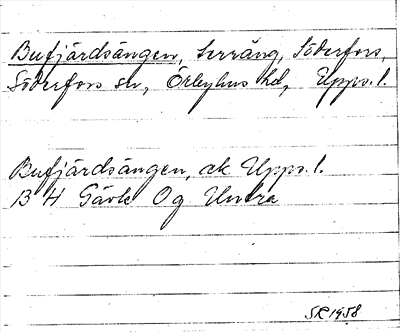 Bufjärdsängen, terräng, Söderfors,
Söderfors sn, Örbyhus hd, Upps. l.
Bufjärdsängen, ak Upps. l.
B H Gävle Og Untra
SR 1958